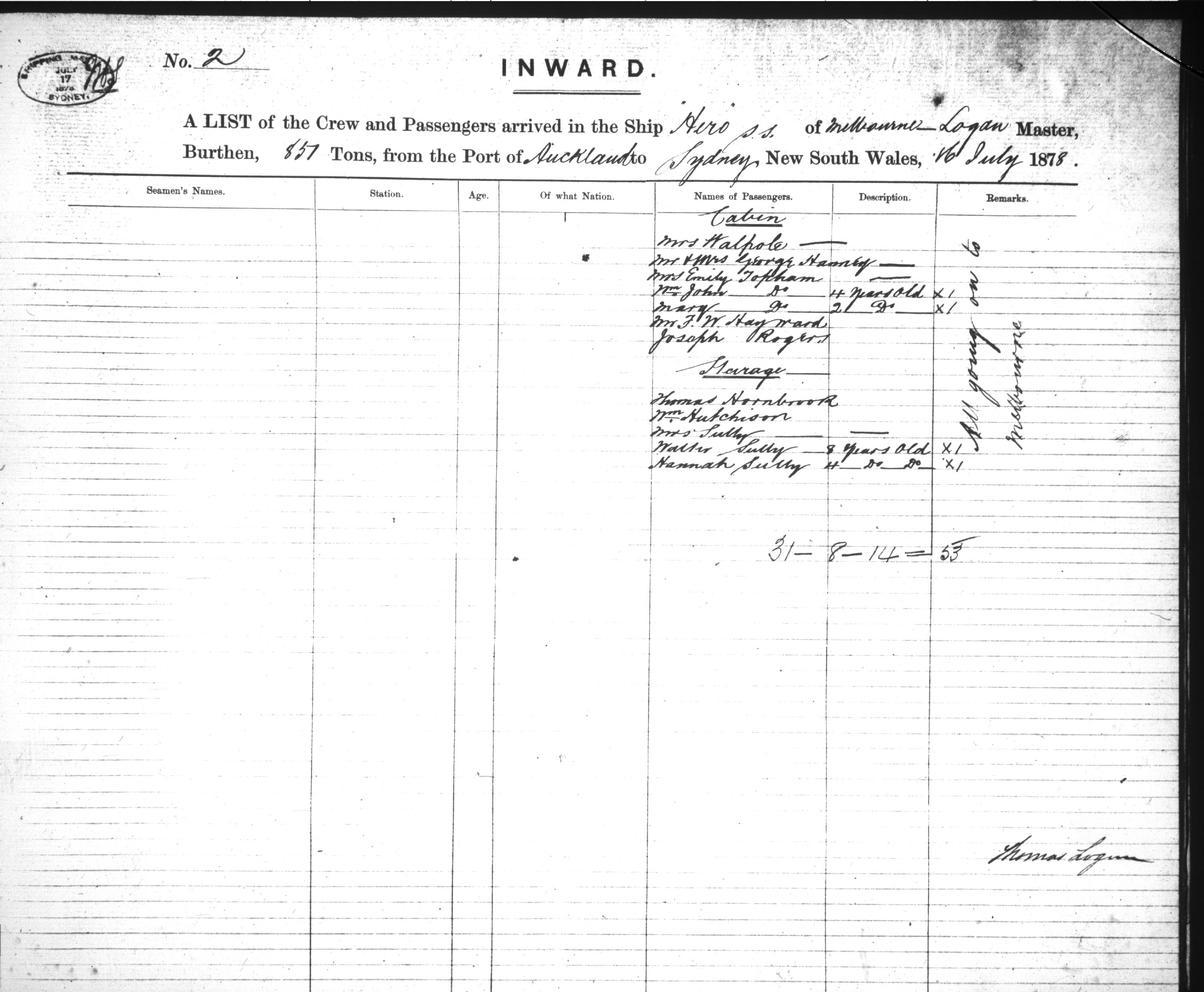 SHIPPING MA
JULY
17
1878
SYDNEY.
No. 2
INWARD.
A LIST of the Crew and Passengers arrived in the Ship Hero s.s. of Melbourne Logan Master,
Burthen, 851 Tons, from the Port of Auckland to Sydney, New South Wales, 16 July 1878.
Seamen's Names. Station. Age. Of what Nation. Names of Passengers. Description. Remarks.
Cabin
Mrs Walpole —
Mr & Mrs George Hanney —
Mrs Emily Topham —
Wm John Do 4 Years Old X1
Mary Do 2 Do X1
Mr F. W. Hayward
Joseph Rogers
Starage
Thomas Hornbrook
Wm Hutchison
Mrs Sully —
Walter Sully 8 Years Old X1
Hannah Sully 4 Do Do X1
All going on to
Melbourne
31 — 8 — 14 = 53
Thomas Logan